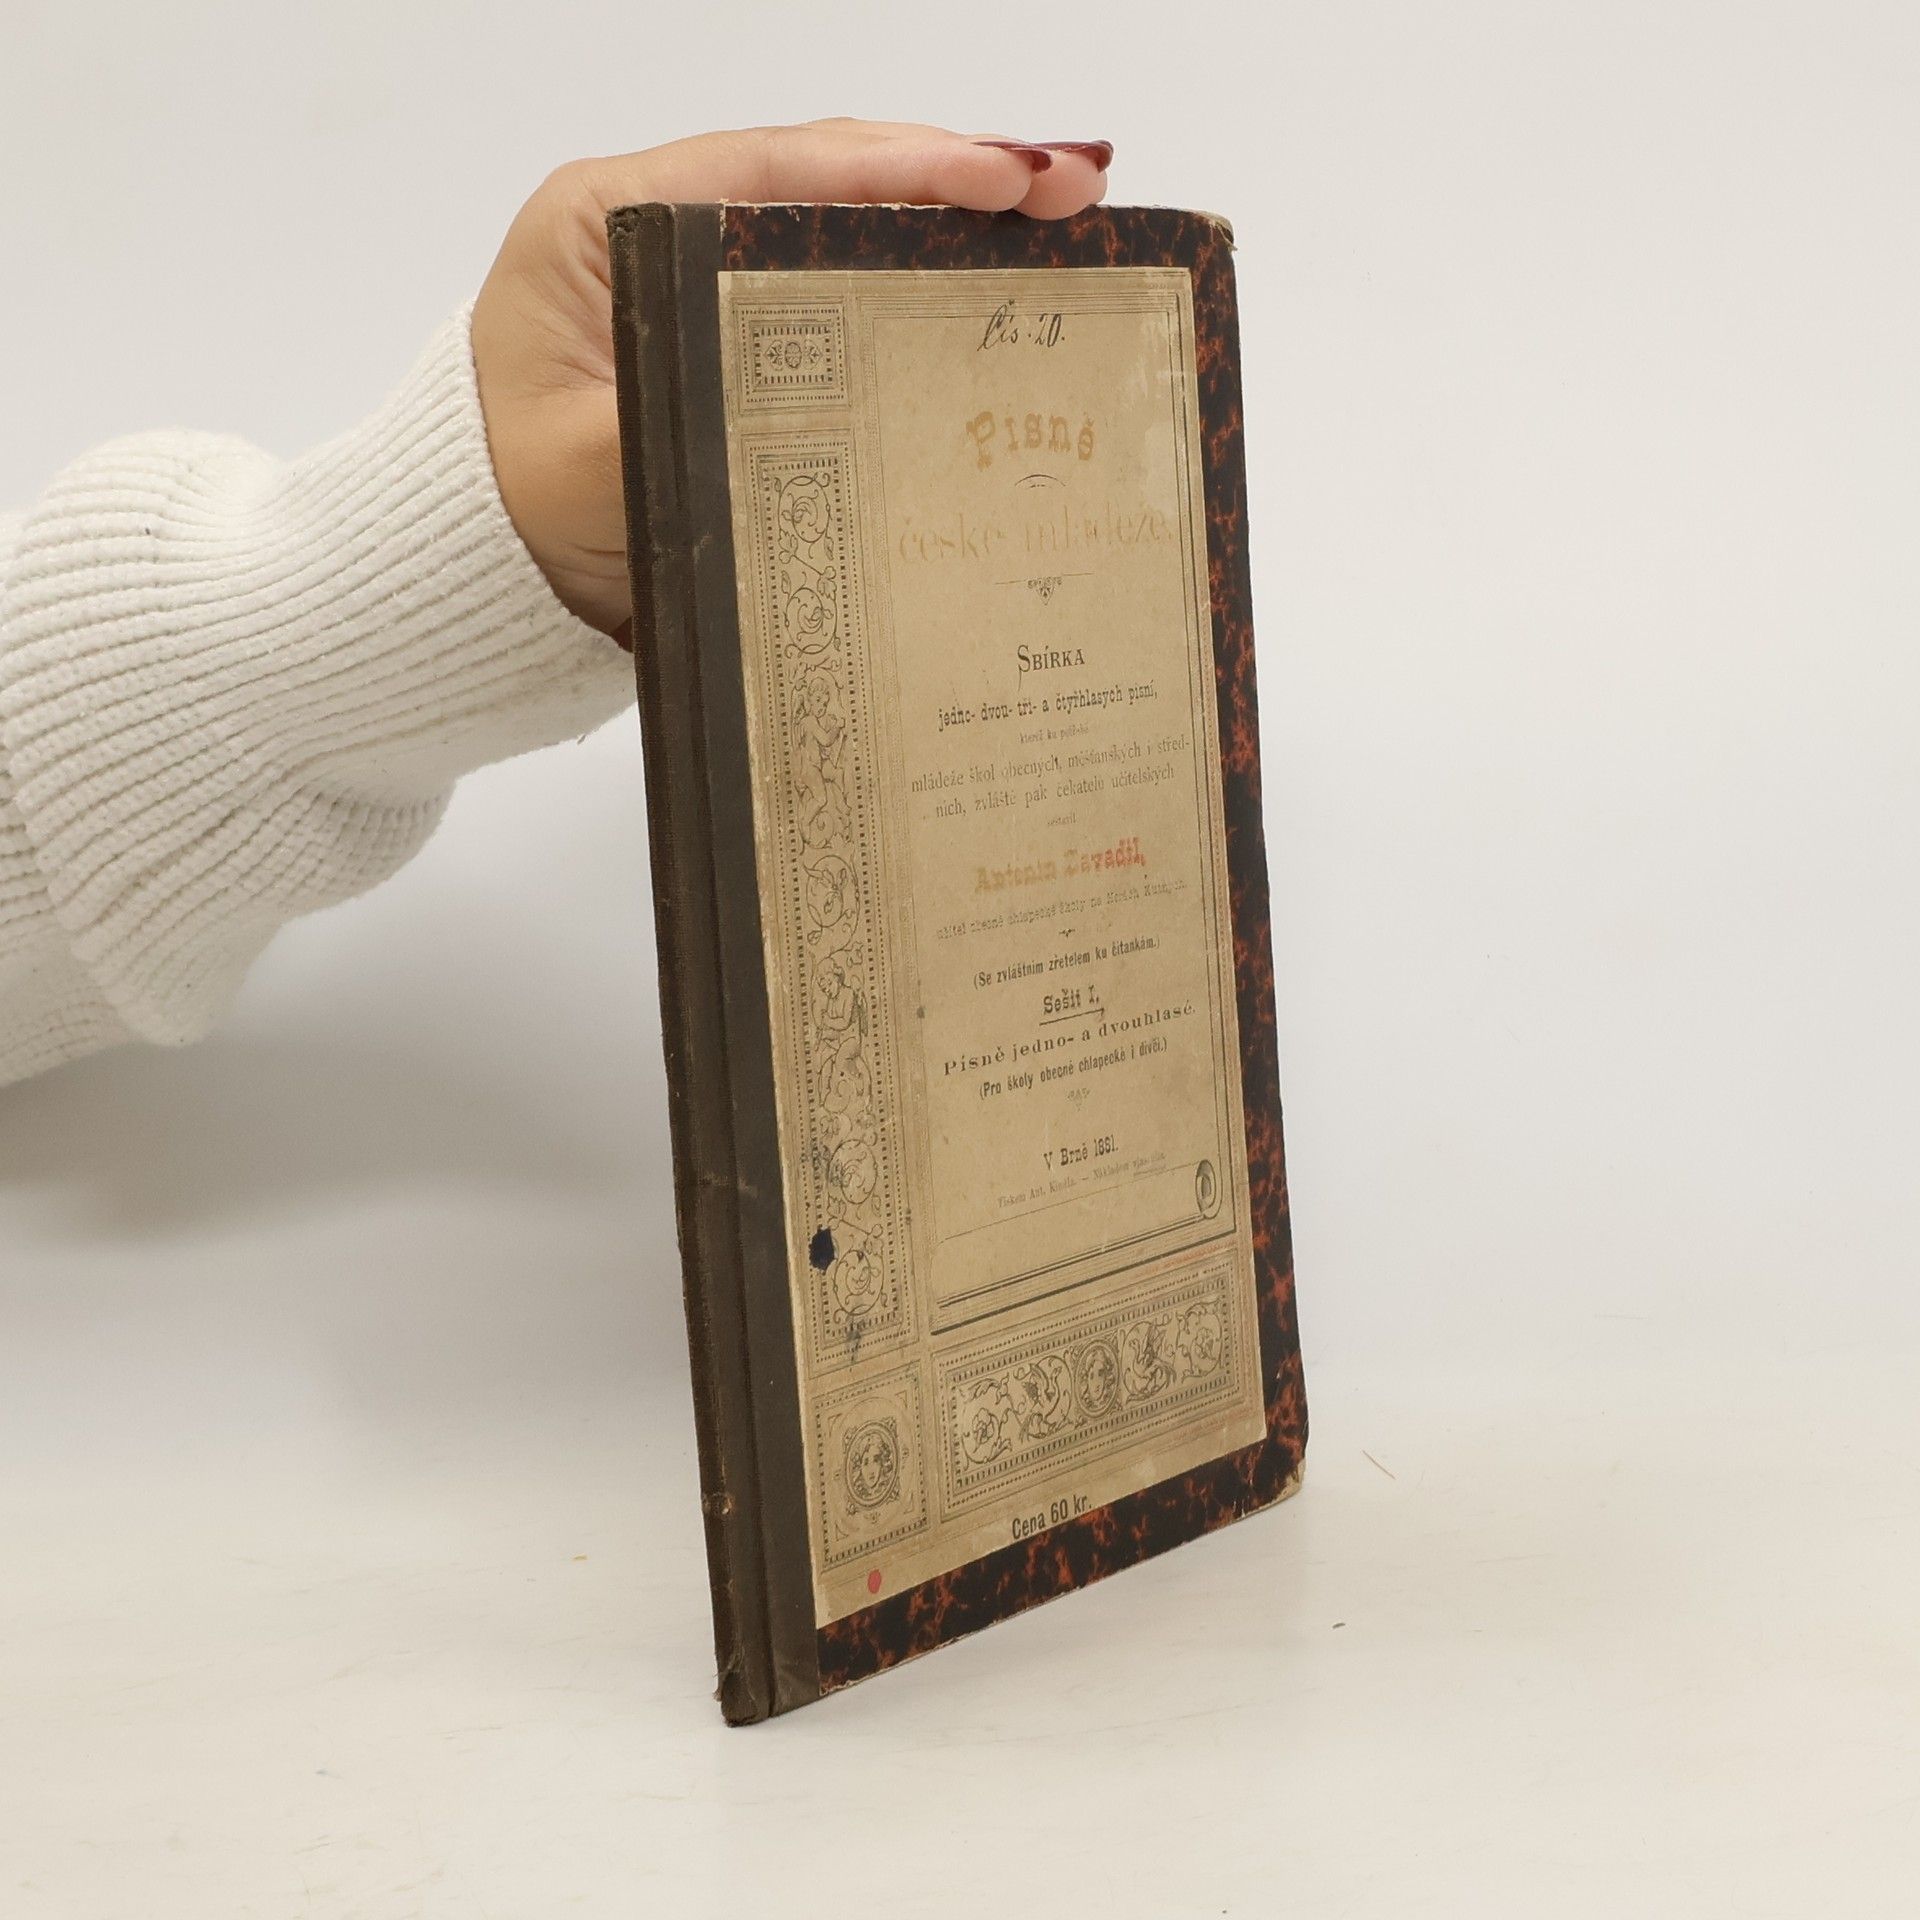 Čís. 20.
Písně
české mládeže.
Sbírka
jedno- dvou- tří- a čtyřhlasých písní,
kteréž ku potřebě
mládeže škol obecných, měšťanských i střed-
ních, zvláště pak čekatelů učitelských
sestavil
Antonín Zavadil,
učitel obecné chlapecké školy na Horách Kutných.
(Se zvláštním zřetelem ku čítankám.)
Sešit I.
Písně jedno- a dvouhlasé.
(Pro školy obecné chlapecké i dívčí.)
V Brně 1881.
Tiskem Ant. — Nákladem vlastním.
Cena 60 kr.